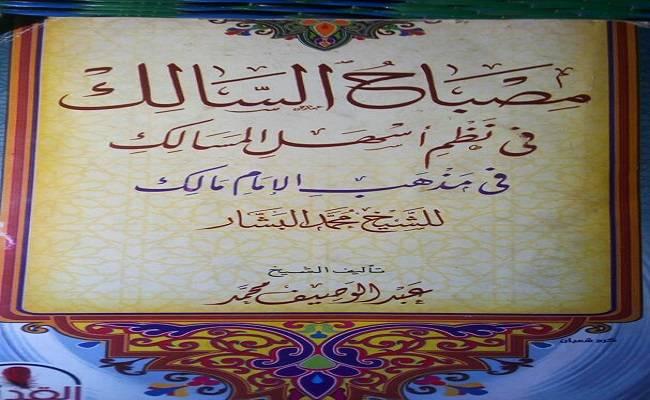 مصباح السالك
في نظم أسهل المسالك
في مذهب الإمام مالك
للشيخ محمد البشار
تأليف الشيخ
عبد الوصيف محمد
كرم شعبان